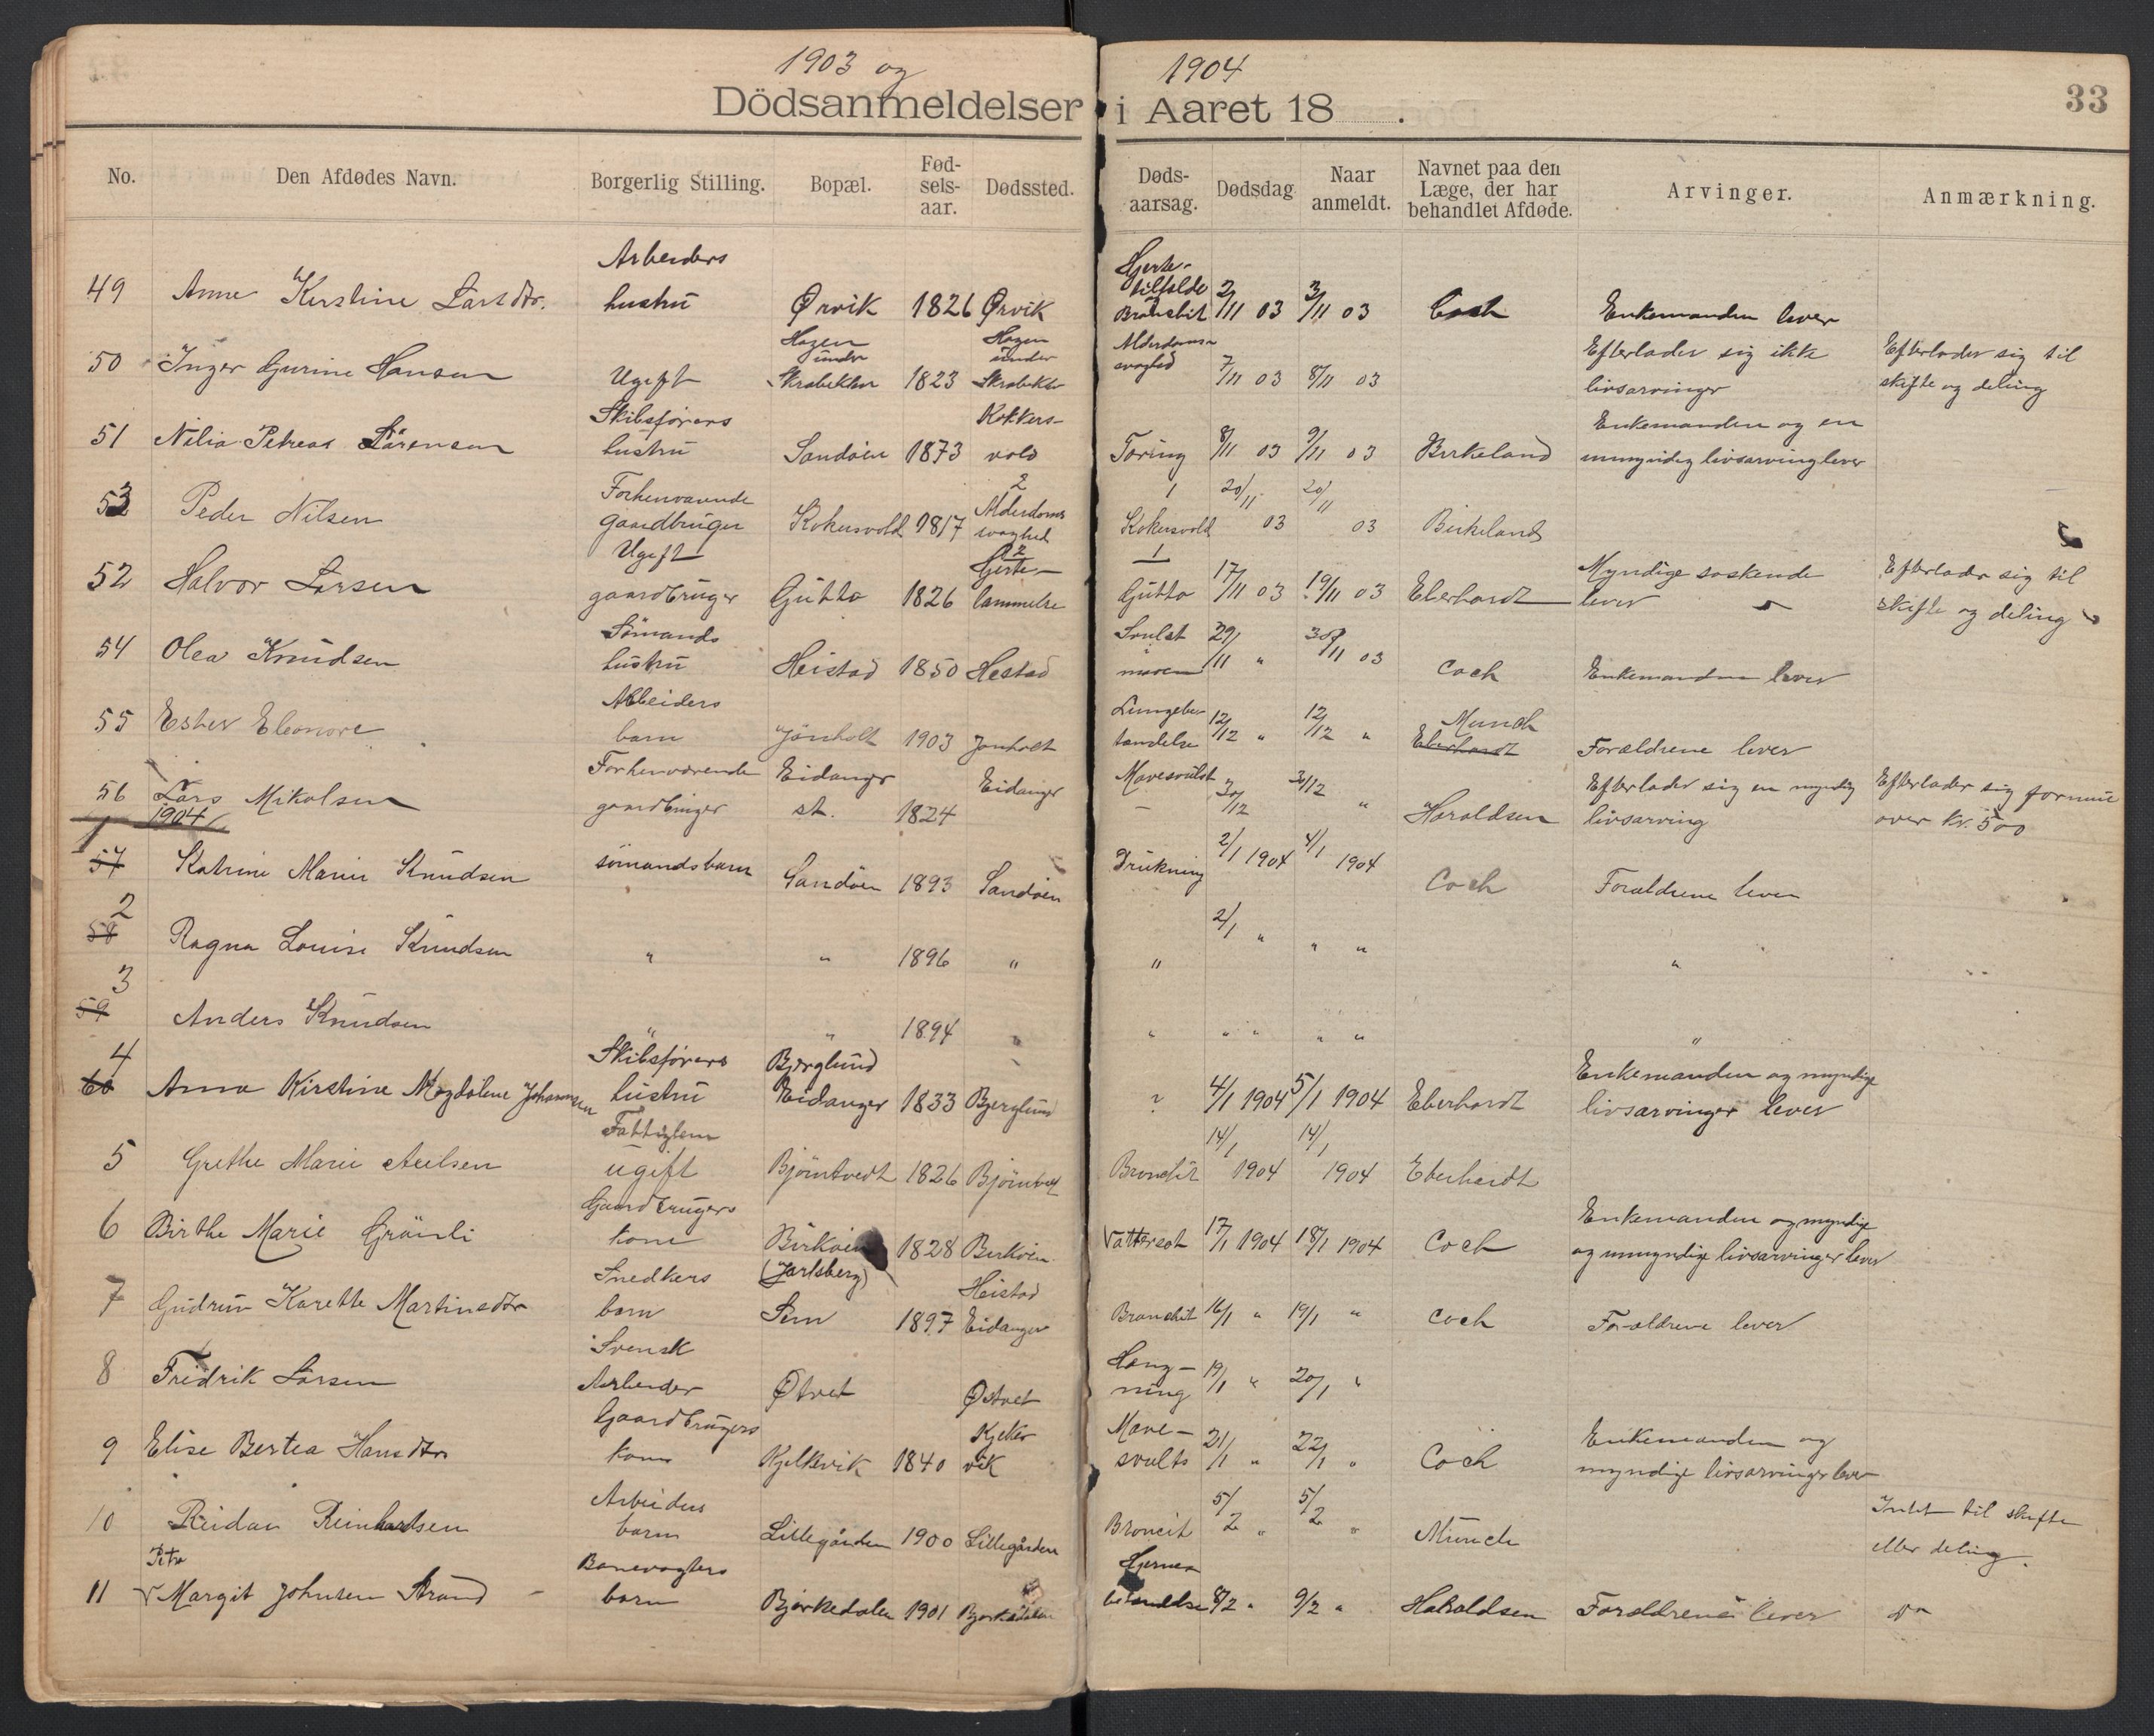 1903 og 1904
Dödsanmeldelser i Aaret 18 .
33
No. Den Afdødes Navn. Borgerlig Stilling. Bopæl. Fødselsaar. Dødssted. Dødsaarsag. Dødsdag Naar anmeldt. Navnet paa den Læge, der har behandlet Afdøde. Arvinger. Anmærkning.
49 Anne Kirstine Larsdtr. Arbeiders hustru Ørvik 1826 Ørvik Hjertetilfælde 2/11 03 3/11 03 Coch Enkemanden lever
50 Inger Gurine Hansen Ugift Hagen under Skrabeklev 1823 Hagen under Skrabeklev Alderdomssvaghed 7/11 03 8/11 03 Efterlader sig ikke livsarvinger Efterlader sig til skifte og deling
51 Nilia Petrea Sørensen Skibsførers hustru Sandøen 1873 Kokkersvold Tæring 8/11 03 9/11 03 Birkeland Enkemanden og en umyndig livsarving lever
53 Peder Nilsen Forhenværende gaardbruger Kokersvold 1817 2 Alderdomssvaghed 1 Kokersvold 20/11 03 20/11 03 Birkeland
52 Halvor Larsen Ugift gaardbruger Gutta 1826 2 Hjertelammelse 1 Gutta 17/11 03 19/11 03 Eberhardt Myndige søskende lever Efterlader sig til skifte og deling
54 Olea Knudsen Sömands hustru Heistad 1850 Hestad Svulst maven 29/11 " 30/11 03 Coch Enkemanden lever
55 Ester Eleonore Arbeiders barn Jönholt 1903 Jonholt Lungebetændelse 12/12 " 12/12 " Münch Eberhardt Forældrene lever
56 Lars Mikalsen Forhenværende gaardbruger Eidanger st. 1824 Eidanger Mavesvulst 30/12 31/12 " Haraldsen Efterlader sig en myndig livsarving Efterlader sig formue over kr. 500
1904
1 57 Katrine Marie Knudsen sömandsbarn Sandöen 1893 Sandöen Drukning 2/1 1904 4/1 1904 Coch Forældrene lever
2 58 Ragna Louise Knudsen " " 1896 " " 2/1 " " " "
3 59 Anders Knudsen " " 1894 " " " " " " "
4 60 Anna Kirstine Magdalene Johannsen Skibsførers hustru Bjerglund Eidanger 1833 Bjerglund ? 4/1 1904 5/1 1904 Eberhardt Enkemanden og myndige livsarvinger lever
5 Grethe Marie Fattiglem ugift Björntvedt 1826 Björntvedt Bronchit 14/1 1904 14/1 1904 Eberhardt
6 Birthe Marie Grönli Gaardbrugers kone Birköen 1828 Birköen Vattersot 17/1 1904 18/1 1904 Coch Enkemanden og myndige og umyndige livsarvinger lever
7 Gudrun Karette Martinsdtr Snedkers barn (Jarlsberg) Sem 1897 Heistad Eidanger Bronchit 16/1 " 19/1 " Coch Forældrene lever
8 Fredrik Larsen Svensk Arbeider Østvet Østvet Hængning 19/1 " 20/1 "
9 Elise Bertea Hansdtr Gaardbrugers kone Kjelkevik 1840 Kjelkevik Mavesvulst 21/1 " 22/1 " Coch Enkemanden og myndige livsarvinger lever
10 Reidar Reinhardsen Arbeiders barn Lillegården 1900 Lillegården Broncit 5/2 " 5/2 " Münch Intet til skifte eller deling.
11 Petra Margit Johnsen Strand Banevogters barn Bjørkedalen 1901 Bjørkedalen Hjernebetændelse 8/2 " 9/2 " Haraldsen Forældrene lever do